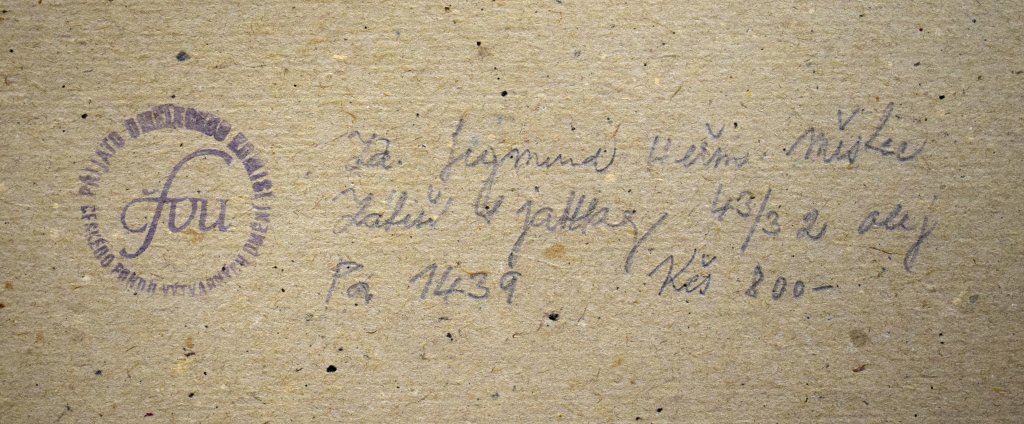 PŘIJATO UMĚLECKOU KOMISÍ
ČESKÉHO FONDU VÝTVARNÝCH UMĚNÍ
čfvu
Zd. Sigmund Heřm. Městec
Zátiší s jablky 43/32 olej
Pa 1439 Kčs 800-